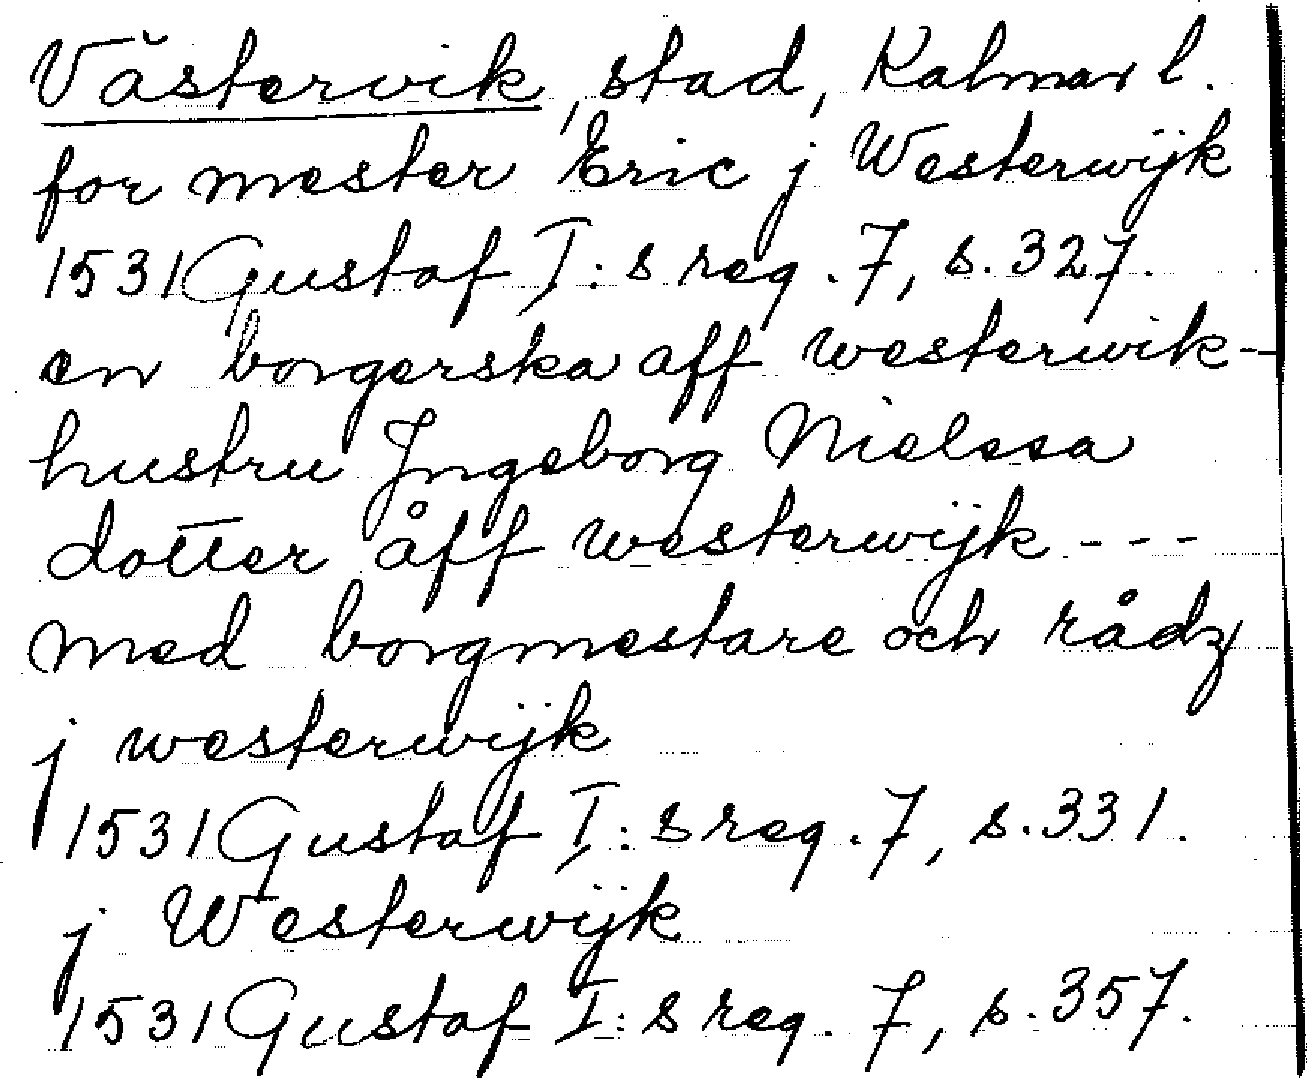 Västervik, stad, Kalmar l.
for mester Eric j Westerwijk
1531 Gustaf I:s reg. 7, s. 327.
en borgerska aff westerwik -
hustru Ingeborg Nielssa
dotter åff westerwijk - - -
med borgmestare och rådz
j westerwijk
1531 Gustaf I:s reg. 7, s. 331.
j Westerwijk
1531 Gustaf I:s reg. 7, s. 357.